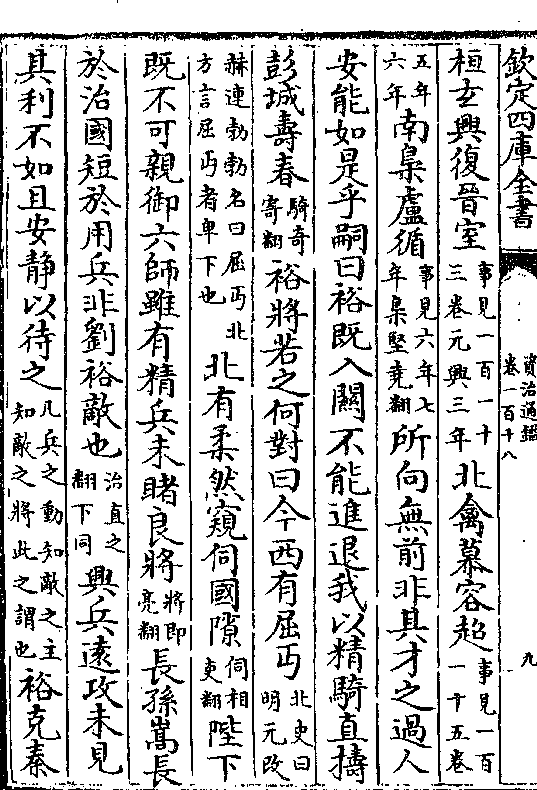 欽定四庫全書
資治通鑑
卷一百十八
九
桓玄興復晉室事見一百一十三卷元興三年北禽慕容超事見一百一十五卷
五年六年南梟盧循事見六年七年梟堅堯翻所向無前非其才之過人
安能如是乎嗣曰裕既入關不能進退我以精騎直擣
彭城壽春騎奇寄翻裕將若之何對曰今西有屈丐北史曰明元改
赫連勃勃名曰屈丐北方言屈丐者卑下也北有柔然窺伺國隙伺相吏翻陛下
既不可親御六師雖有精兵未睹良將將即亮翻長孫嵩長
於治國短於用兵非劉裕敵也治直之翻下同興兵遠攻未見
其利不如且安静以待之凡兵之動知敵之主知敵之將此之謂也裕克秦